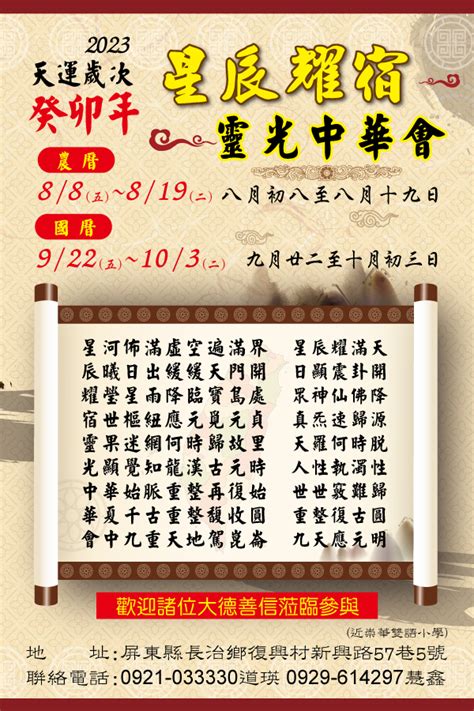 2023
天運歲次
癸卯年
星辰耀宿
靈光中華會
農曆
8/8(五)~8/19(二) 八月初八至八月十九日
國曆
9/22(五)~10/3(二) 九月廿二至十月初三日
星河佈滿虛空遍滿界 星辰耀滿天
辰曦日出緩緩天門開 日顯震卦開
耀瑩星雨降臨寶島處 眾神仙佛際
宿世樞紐應元覓元貞 真炁速歸源
靈果迷網何時歸故里 天羅何時脱
光顯覺知龍漢古元時 人性執濁性
中華始脈重整再復始 世世竅難歸
華夏千古重整馥收圓 重整復收圓
會中九重天地駕崑崙 九天應元明
歡迎諸位大德善信蒞臨參與
(近崇華雙語小學)
地 址:屏東縣長治鄉復興村新興路57巷5號
聯絡電話:0921-033330道瑛 0929-614297慧鑫